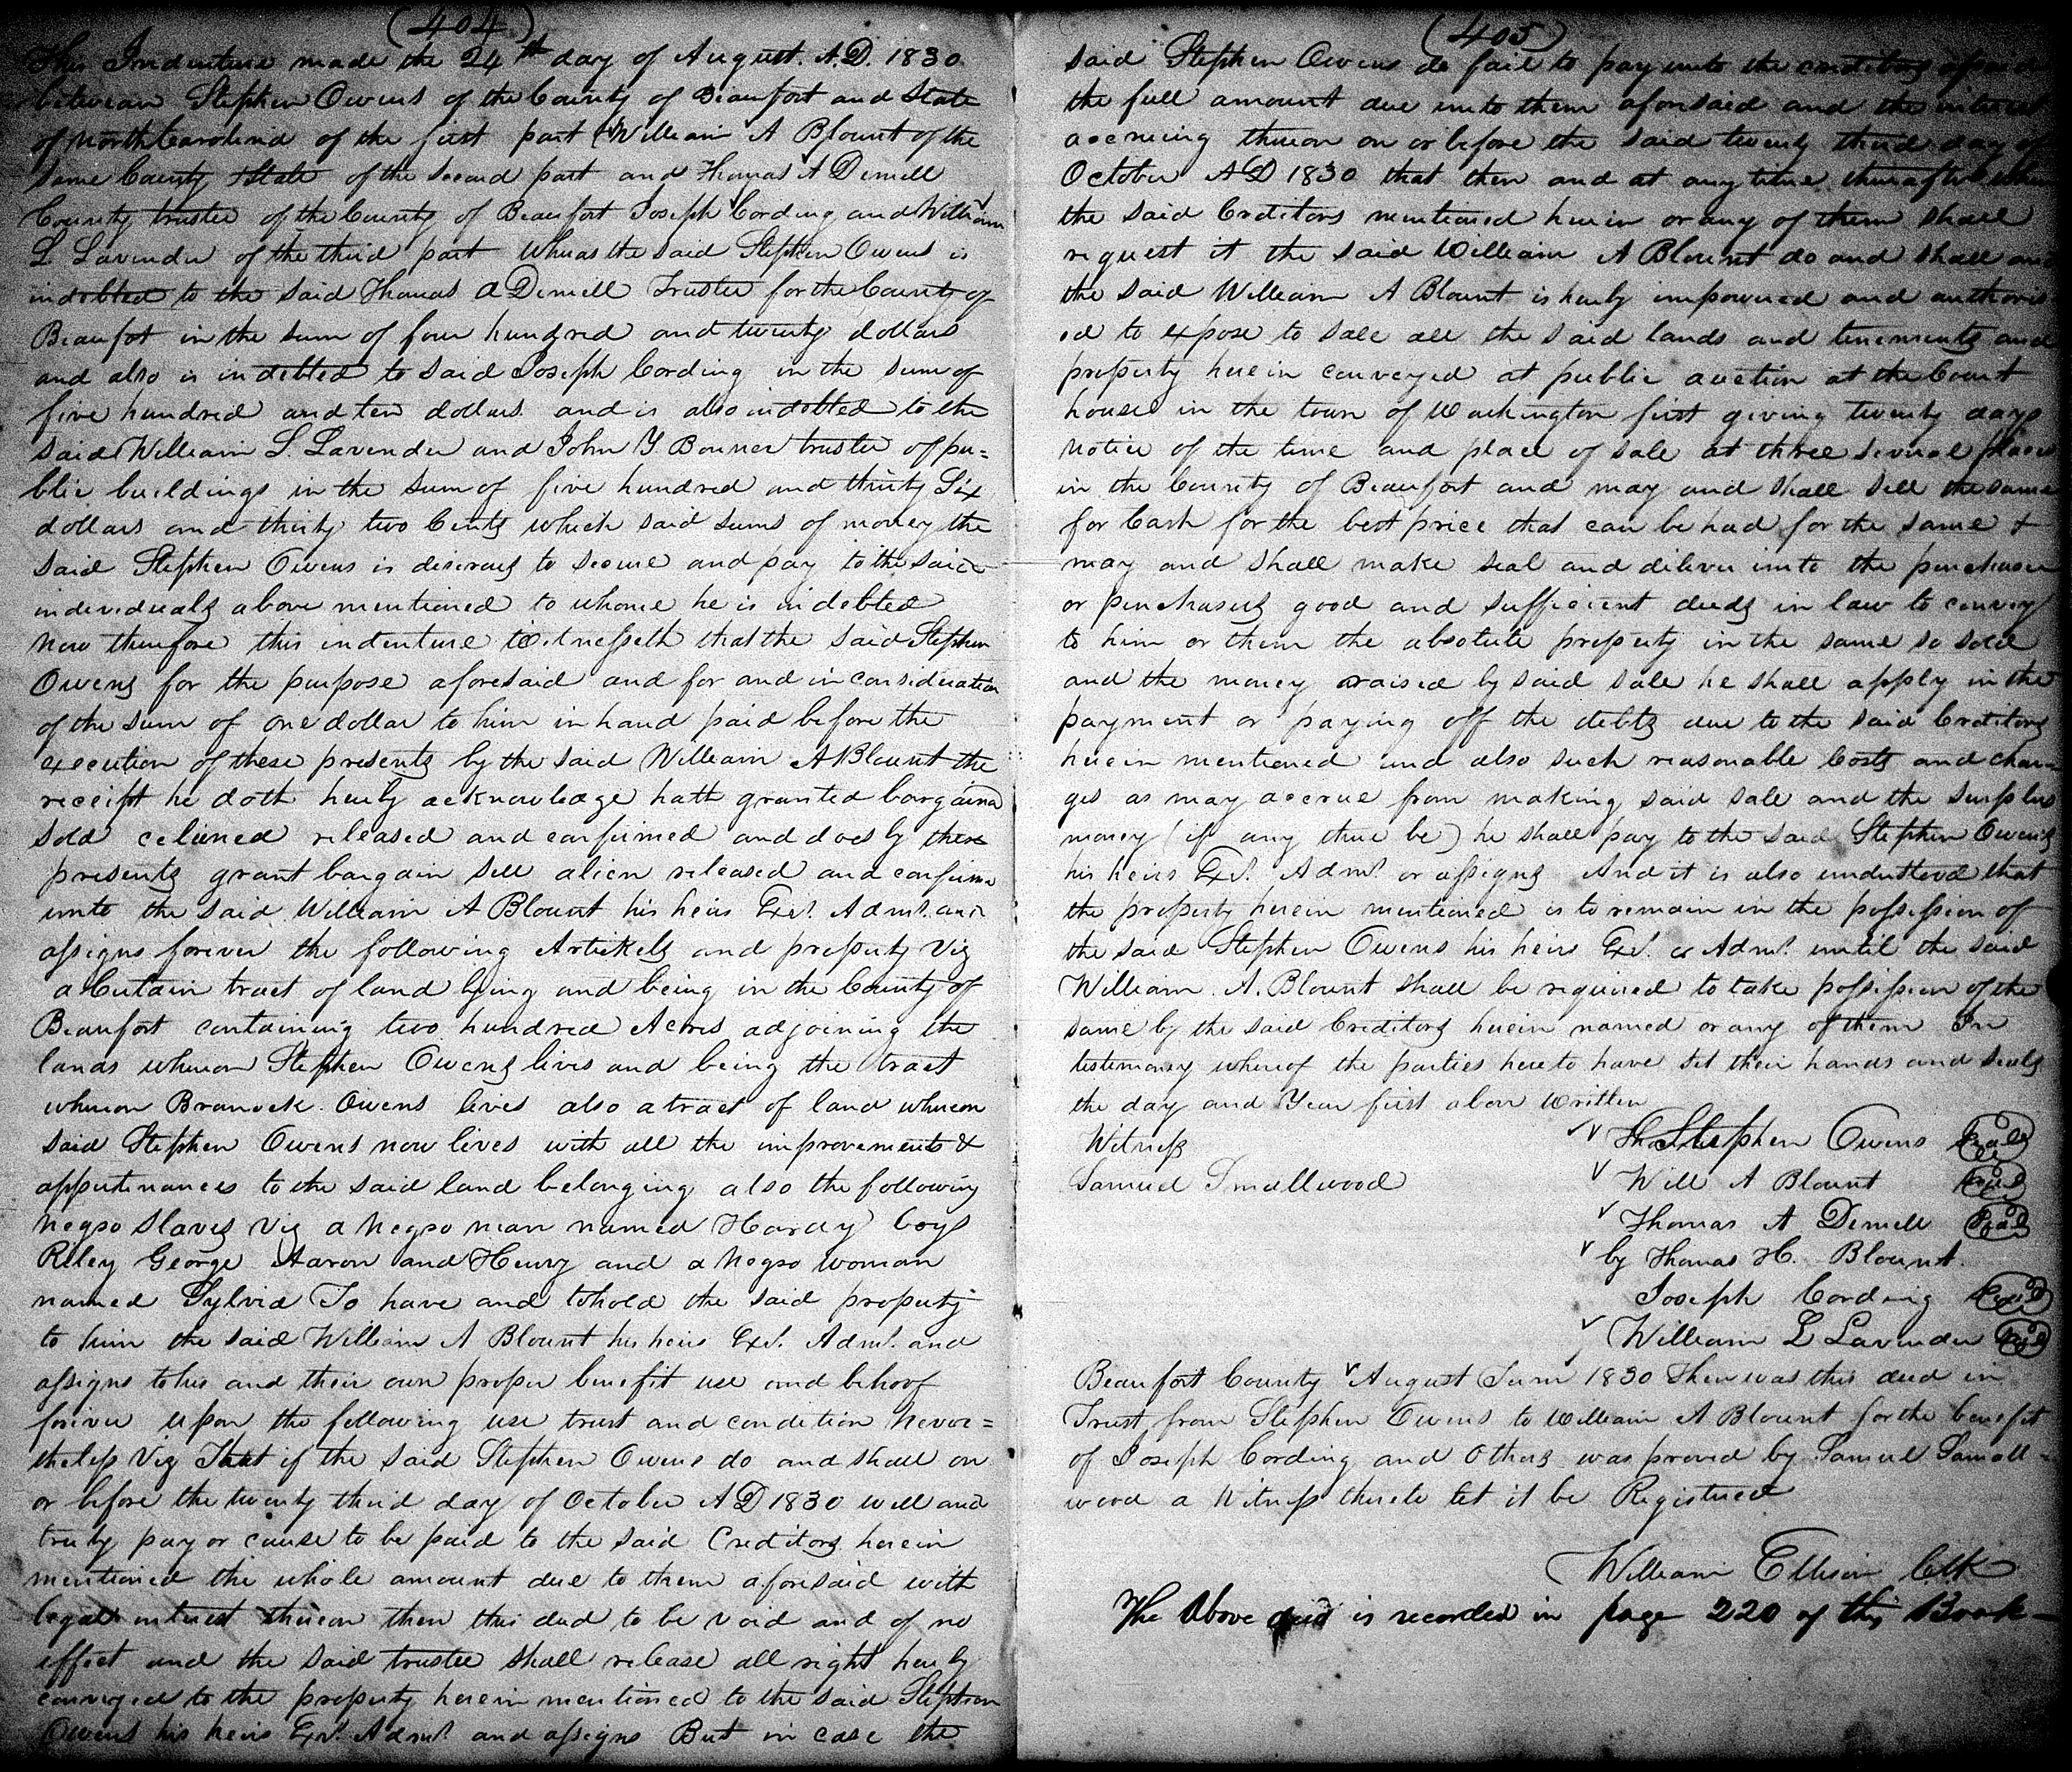 (404)
This Indenture made the 24th day of August. A.D. 1830
between Stephen Owens of the County of Beaufort and State
of North Carolina of the first part & William A Blount of the
same County & State of the second part and Thomas A Demill
County trustee of the County of Beaufort Joseph Cording and William
L. Lavender of the third part whereas the said Stephen Owens is
indebted to the said Thomas A Demill Trustee for the County of
Beaufort in the sum of four hundred and twenty dollars
and also is indebted to said Joseph Cording in the sum of
five hundred and ten dollars and is also indebted to the
said William L. Lavender and John Y Bonner trustee of pu=
blic buildings in the sum of five hundred and thirty Six
dollars and thirty two Cents which said sums of money the
said Stephen Owens is desirous to secure and pay to the said
individuals above mentioned to whome he is indebted
Now therefore this indenture Witnesseth that the said Stephen
Owens for the purpose aforesaid and for and in consideration
of the sum of one dollar to him in hand paid before the
execution of these presents by the said William A Blount the
receipt he doth hereby acknowledge hath granted bargaind
sold aliened released and confirmed and does by these
presents grant bargain sell alien released and confirm
unto the said William A Blount his heirs Exs. Adms. and
assigns forever the following Artickels and property Viz
a Certain tract of land lying and being in the County of
Beaufort containing two hundred Acres adjoining the
lands whereon Stephen Owens lives and being the tract
whereon Branock Owens lives also a tract of land whereon
said Stephen Owens now lives with all the improvements &
appurtenances to the said land belonging also the following
Negro Slaves Viz a Negro man named Hardy boys
Riley George Aaron and Henry and a Negro Woman
named Sylvia To have and to hold the said property
to him the said William A Blount his heirs Exs. Adms. and
assigns to his and their own proper benefit use and behoof
forever upon the following use trust and condition never=
theless Viz That if the said Stephen Owens do and shall on
or before the twenty third day of October A D 1830 well and
truly pay or cause to be paid to the said Creditors herein
mentioned the whole amount due to them aforesaid with
legal interest thereon then this deed to be void and of no
effect and the said trustee shall release all right hereby
conveyed to the property herein mentioned to the said Stephen
Owens his heirs Exs. Adms. and assigns But in case the
(405)
said Stephen Owens do fail to pay unto the creditors aforesaid
the full amount due unto them aforesaid and the interest
accrueing thereon on or before the said twenty third day of
October A D 1830 that then and at any time thereafter when
the said Creditors mentioned herein or any of them shall
request it the said William A Blount do and shall and
the said William A Blount is hereby impowered and authoris
ed to expose to sale all the said lands and tenements and
property herein conveyed at public auction at the Court
house in the town of Washington first giving twenty days
notice of the time and place of sale at three several places
in the County of Beaufort and may and shall sell the same
for Cash for the best price that can be had for the same &
may and shall make seal and diliver unto the purchaser
or purchasers good and sufficient deeds in law to convey
to him or them the absolute property in the same so sold
and the money raised by said sale he shall apply in the
payment or paying off the debts due to the said Creditors
herein mentioned and also such reasonable Costs and char
ges as may accrue from making said sale and the surplus
money (if any there be) he shall pay to the said Stephen Owens
his heirs Exs. Adms. or assigns And it is also understood that
the property herein mentioned is to remain in the possession of
the said Stephen Owens his heirs Exs. or Adms. until the said
William A. Blount shall be required to take possession of the
same by the said Creditors herein named or any of them In
testimony whereof the parties hereto have set their hands and seals
the day and Year first above written
Witness Stephen Owens Seal
Samuel Smallwood Will A Blount Seal
Thomas A Demill Seal
by Thomas H. Blount
Joseph Cording Seal
William L Lavender Seal
Beaufort County August Term 1830 Then was this deed in
Trust from Stephen Owens to William A Blount for the benefit
of Joseph Cording and Others was proved by Samuel Small=
wood a Witness thereto let it be Registered
William Ellison Clk
The Above deed is recorded in page 220 of this Book